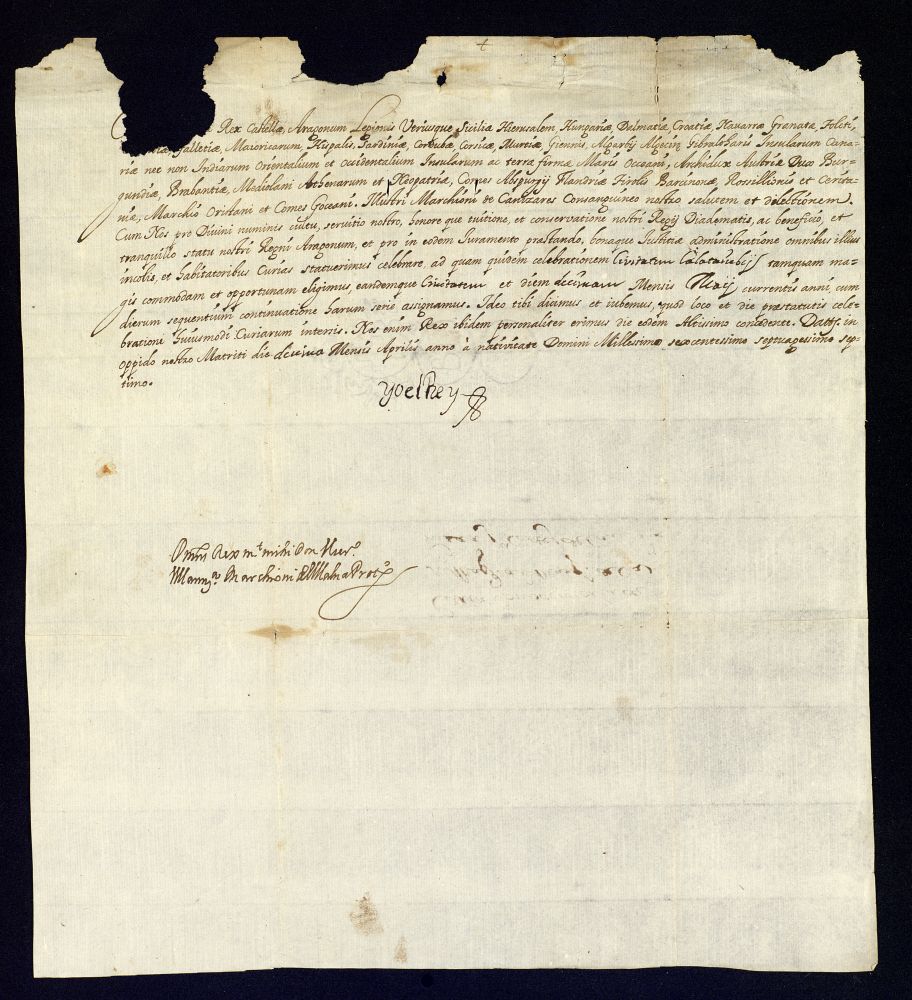 Rex Castellæ, Aragonum Legionis Vtriusque Siciliæ Hierusalem, Hungariæ, Dalmatiæ, Croatiæ, Navarræ Granatæ, Toleti,
Galletiæ, Maioricarum, Hispalis, Sardiniæ, Cordubæ, Corsicæ, Murtiæ, Giennis, Algarbij Algecirę Gibraltaris Insularum Cana-
riæ nec non Indiarum Orientalium et Occidentalium Insularum ac terræ firmæ Maris Occeani, Archidux Austriæ Dux Bur-
gundiæ, Brabantiæ, Mediolani Athenarum et Neopatriæ, Comes Abspurgij Flandriæ Tirolis Barcinonæ, Rossillionis et Cerita-
niæ, Marchio Oristani et Comes Goceani. Illustri Marchioni de Cañizares Consanguineo nostro salutem et dilectionem.
Cum Nos pro Divini numinis cultu, servitio nostro, honore que tuitione, et conservatione nostri Regij Diadematis, ac beneficio, et
tranquillo statu nostri Regni Aragonum, et pro in eodem Iuramento præstando, bonaque Iustitiæ administratione omnibus illius
incolis, et habitatoribus Curias statuerimus celebrare, ad quam quidem celebrationem Civitatem Calataiubij tamquam ma-
gis commodam et opportunam eligimus, eandemque Civitatem et diem decimam Mensis Maij currentis anni, cum
dierum sequentium continuatione harum serie assignamus. Ideo tibi dicimus et iubemus, quod loco et die præstatutis cele-
brationi huiusmodi Curiarum intersis. Nos enim Rex ibidem personaliter erimus die eodem Altissimo concedente. Datts. in
oppido nostro Matriti die decima Mensis Aprilis anno à nativitate Domini Millesimo sexcentessimo septuagessimo sep-
timo.
Yo el Rey
Rex mt mihi Don
Marchioni